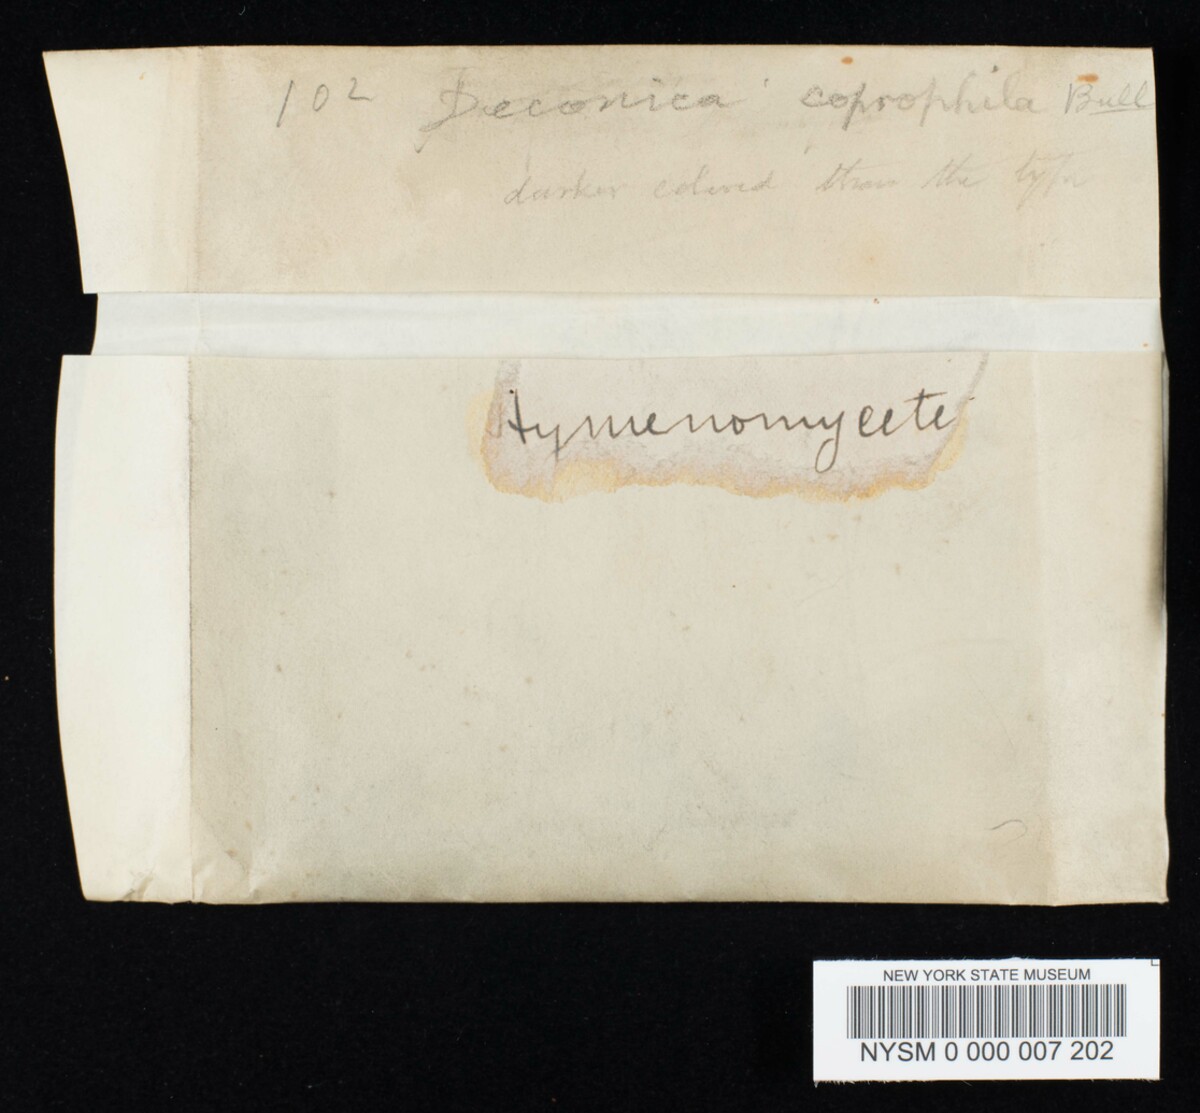 102 Deconica coprophila Bull
darker colored than the type
Hymenomycete
NEW YORK STATE MUSEUM
NYSM 0 000 007 202